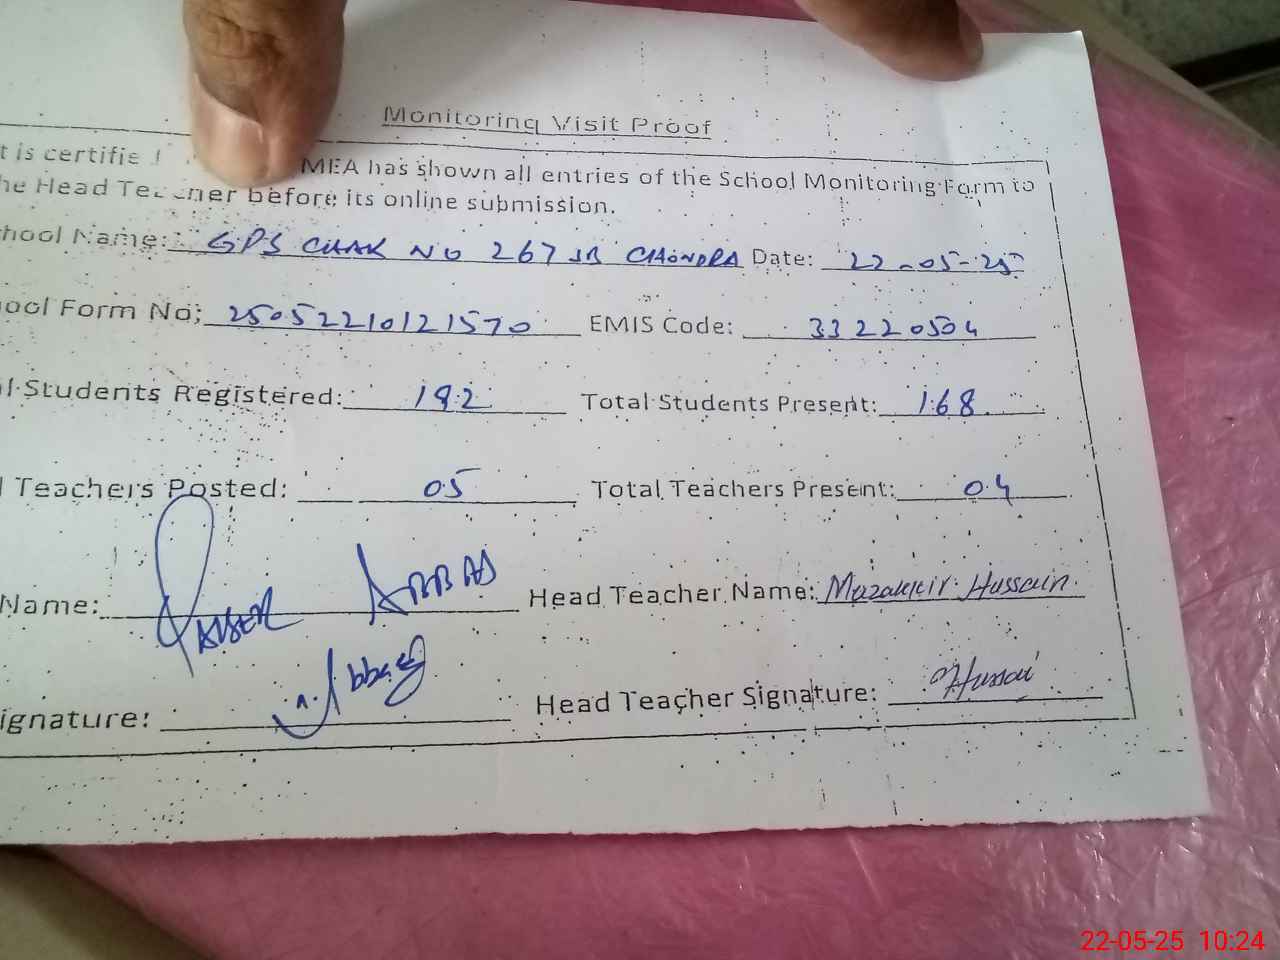 Monitoring Visit Proof
t is certifie MEA has shown all entries of the School Monitoring Form to
he Head Teacher before its online submission.
hool Name: GPS CHAK NO 267 JB CHONDRA Date: 22-05-25
ool Form No: 25052210121570 EMIS Code: 33220504
l Students Registered: 192 Total Students Present: 168
l Teachers Posted: 05 Total Teachers Present: 04
Name: ABBAS Head Teacher Name: Mazakkir Hussain
ignature: Abbas Head Teacher Signature: Hussai
22-05-25 10:24